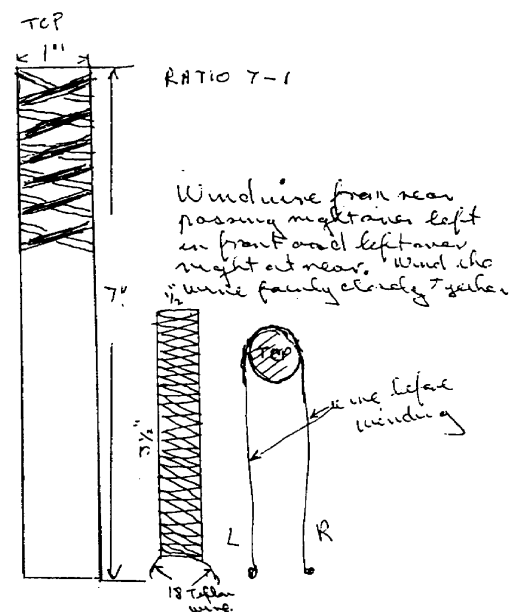 TOP
1"
RATIO 7-1
Wind wire from rear
passing right over left
in front and left over
right at rear. Wind the
wire fairly closely together
7"
1/2"
3 1/2"
TOP
wire before
winding
L
R
18 Teflon
wire.